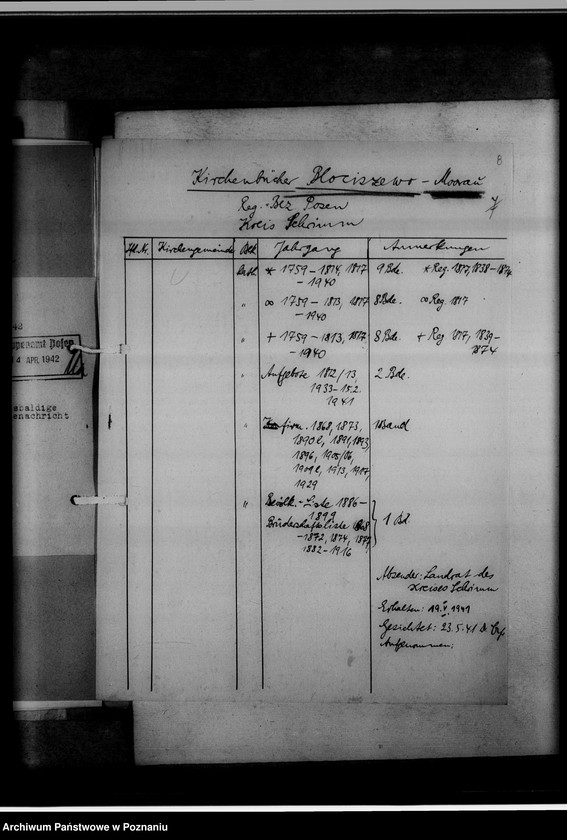 8
Kirchenbücher Blociszewo - Moorau
Reg.-Bez Posen
Kreis Schrimm
Lfd.Nr. Kirchengemeinde Bek Jahrgang Anmerkungen
kath * 1759 – 1814, 1817 9 Bde. * Reg. 1817, 1838 – 1874
– 1940
" ∞ 1759 – 1813, 1817 8 Bde. ∞ Reg. 1817
– 1940
" + 1759 – 1813, 1817 8 Bde. + Reg. 1817, 1839 –
– 1940 1874
" Aufgebote 1812/13, 2 Bde.
1933 – 15.2.
1941
" firm. 1868, 1873, 1 Band
1890 l, 1891, 1893,
1896, 1905/06,
1909 l, 1913, 1917,
1929
" - Liste 1886 –
1899
Bruderschaftsliste 1 Bd.
– 1872, 1874, 1877,
1882 – 1916
Absender: Landrat des
Kreises Schrimm
Erhalten: 19.V.1941
Gesichtet: 23.5.41
Aufgenommen:
42
ppenamt Posen
4 APR. 1942
sbaldige
enachricht
Archiwum Państwowe w Poznaniu